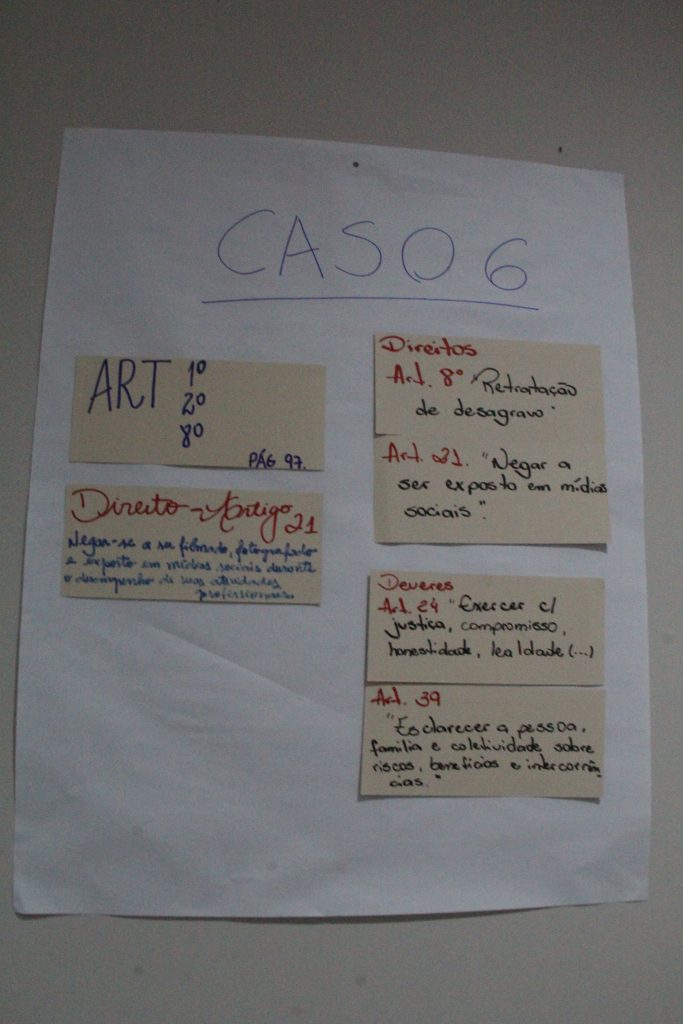 CASO 6
ART 1º
2º
8º
PÁG 97.
Direito - Artigo 21
Negar-se a ser filmado, fotografado
e exposto em mídias sociais durante
o desempenho de suas atividades
profissionais.
Direitos
Art. 8º "Retratação
de desagravo"
Art. 21. "Negar a
ser exposto em mídias
sociais".
Deveres
Art. 24 "Exercer c/
justiça, compromisso,
honestidade, lealdade (...)
Art. 39
"Esclarecer a pessoa,
família e coletividade sobre
riscos, benefícios e intercorrên
cias."